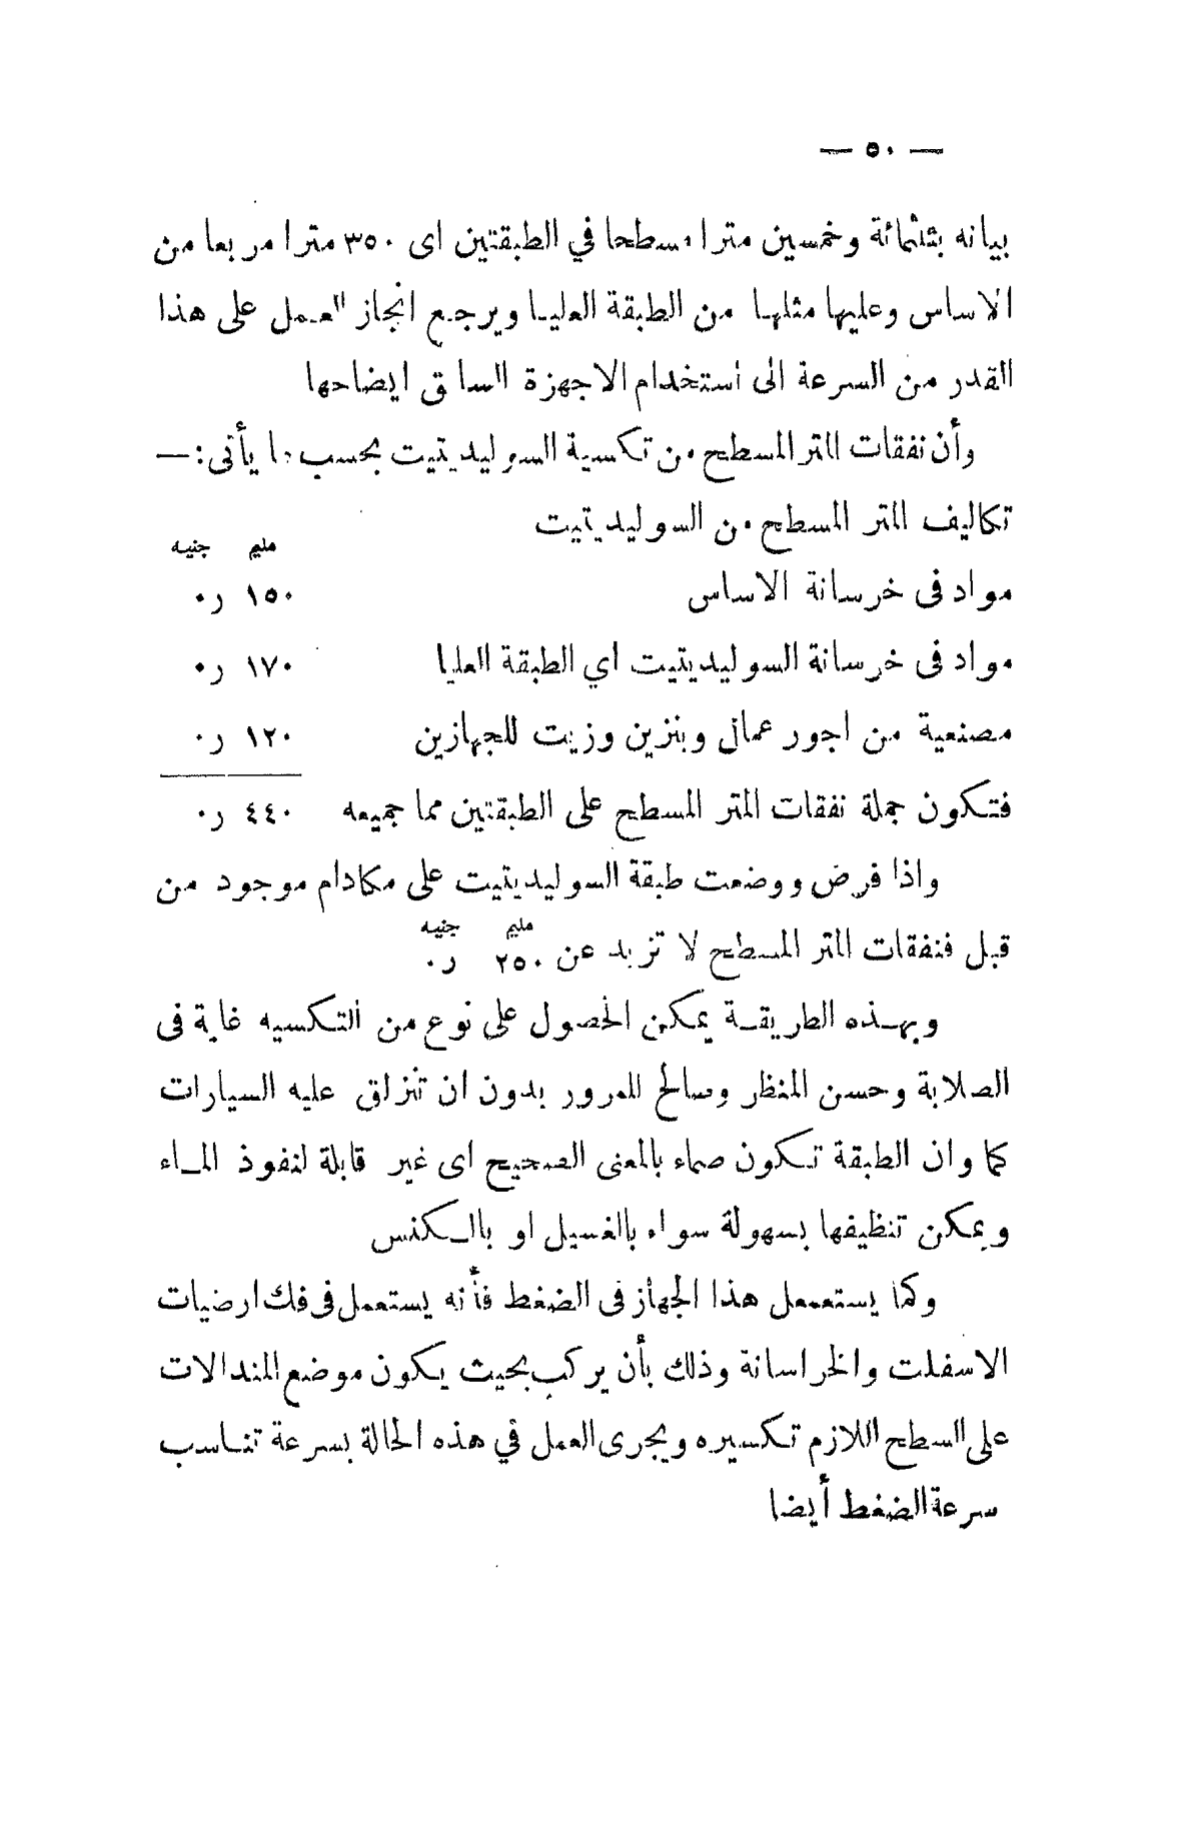 — ٥٠ —
بيانه بثلثمائة وخمسين مترا مسطحا في الطبقتين اى ٣٥٠ مترا مربعا من
الاساس وعليها مثلها من الطبقة العليا ويرجع انجاز العمل على هذا
القدر من السرعة الى استخدام الاجهزة السابق ايضاحها
وأن نفقات المتر المسطح من تكسية السوليديتيت بحسب ما يأتى : —
تكاليف المتر المسطح من السوليديتيت
مليم جنيه
مواد فى خرسانة الاساس ١٥٠ ر٠
مواد فى خرسانة السوليديتيت اي الطبقة العليا ١٧٠ ر٠
مصنعية من اجور عمال وبنزين وزيت للجهازين ١٢٠ ر٠
فتكون جملة نفقات المتر المسطح على الطبقتين مما جميعه ٤٤٠ ر٠
واذا فرض ووضعت طبقة السوليديتيت على مكادام موجود من
مليم جنيه
قبل فنفقات المتر المسطح لا تزيد عن ٢٥٠ ر٠
وبهذه الطريقة يمكن الحصول على نوع من التكسيه غاية فى
الصلابة وحسن المنظر وصالح للمرور بدون ان تنزلق عليه السيارات
كما وان الطبقة تكون صماء بالمعنى الصحيح اى غير قابلة لنفوذ الماء
ويمكن تنظيفها بسهولة سواء بالغسيل او بالكنس
وكما يستعمل هذا الجهاز فى الضغط فأنه يستعمل فى فك ارضيات
الاسفلت والخراسانة وذلك بأن يركب بحيث يكون موضع المندالات
على السطح اللازم تكسيره ويجرى العمل في هذه الحالة بسرعة تناسب
سرعة الضغط أيضا